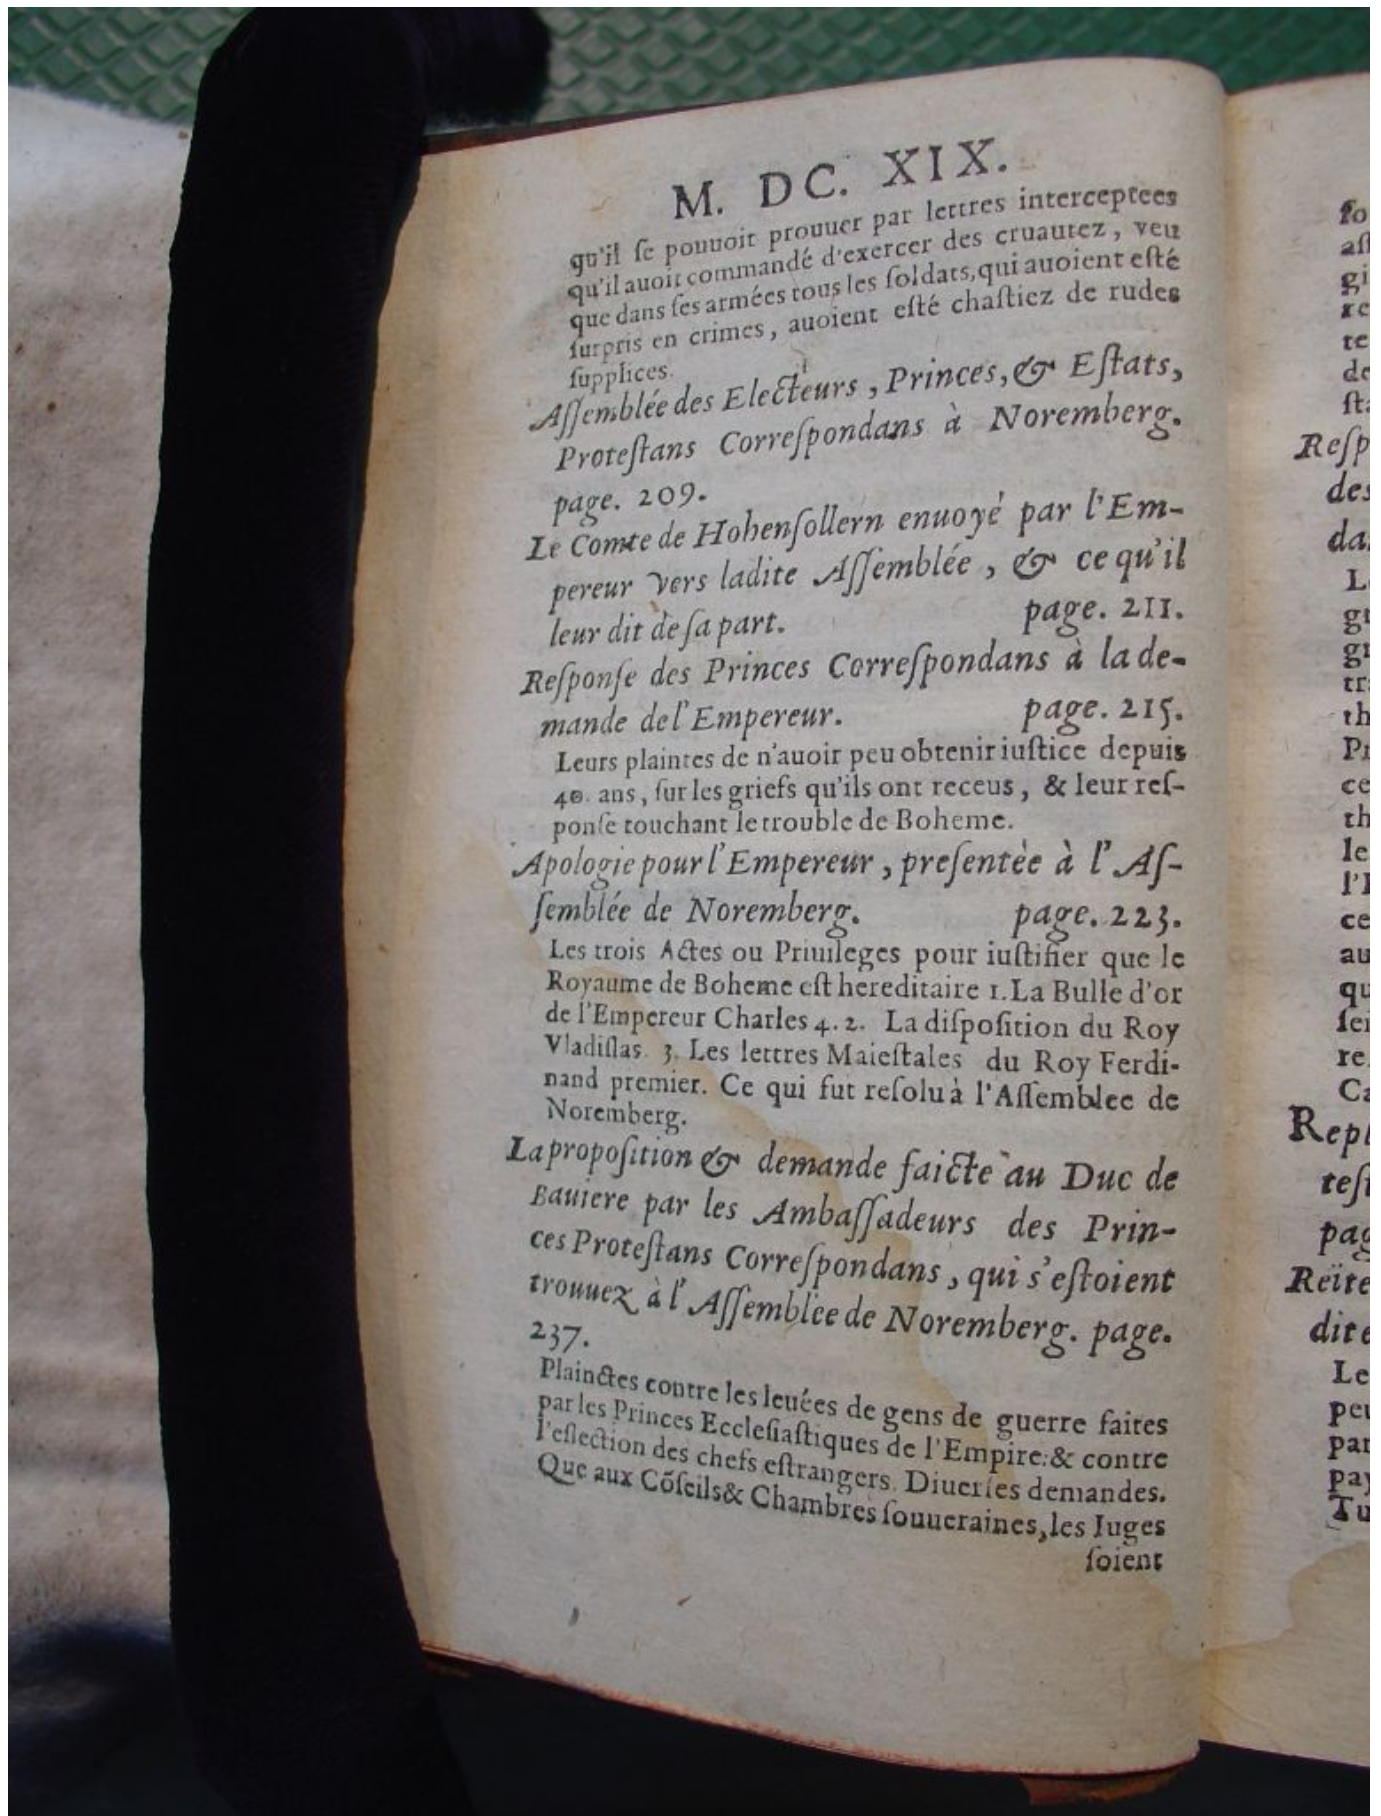 M. DC. XIX.
qu'il ſe pouuoit prouuer par lettres interceptees
qu'il auoit commandé d'exercer des cruautez, veu
que dans ſes armées tous les ſoldats, qui auoient eſté
ſurpris en crimes, auoient eſté chaſtiez de rudes
ſupplices.
Aſſemblée des Electeurs, Princes, & Eſtats,
Proteſtans Correſpondans à Noremberg.
page. 209.
Le Comte de Hohenſollern enuoyé par l'Em-
pereur vers ladite Aſſemblée, & ce qu'il
leur dit de ſa part. page. 211.
Reſponſe des Princes Correſpondans à la de-
mande de l'Empereur. page. 215.
Leurs plaintes de n'auoir peu obtenir iuſtice depuis
40. ans, ſur les griefs qu'ils ont receus, & leur reſ-
ponſe touchant le trouble de Boheme.
Apologie pour l'Empereur, preſentèe à l'Aſ-
ſemblée de Noremberg. page. 223.
Les trois Actes ou Priuileges pour iuſtifier que le
Royaume de Boheme eſt hereditaire 1. La Bulle d'or
de l'Empereur Charles 4. 2. La diſpoſition du Roy
Vladiſlas. 3. Les lettres Maieſtales du Roy Ferdi-
nand premier. Ce qui fut reſolu à l'Aſſemblee de
Noremberg.
La propoſition & demande faicte au Duc de
Bauiere par les Ambaſſadeurs des Prin-
ces Proteſtans Correſpondans, qui s'eſtoient
trouuez à l'Aſſemblèe de Noremberg. page.
237.
Plainctes contre les leuées de gens de guerre faites
par les Princes Eccleſiaſtiques de l'Empire: & contre
l'eſlection des chefs eſtrangers. Diuerſes demandes.
Que aux Cõſeils & Chambres ſouueraines, les Iuges
ſoient
ſo
aſſ
gi
re
te
de
ſta
Reſp
des
da
L
gr
gr
tr
th
Pr
ce
th
le
l'E
ce
au
qu
ſei
re
Ca
Repl
teſt
pag
Reïte
dite
Le
peu
par
pay
Tu